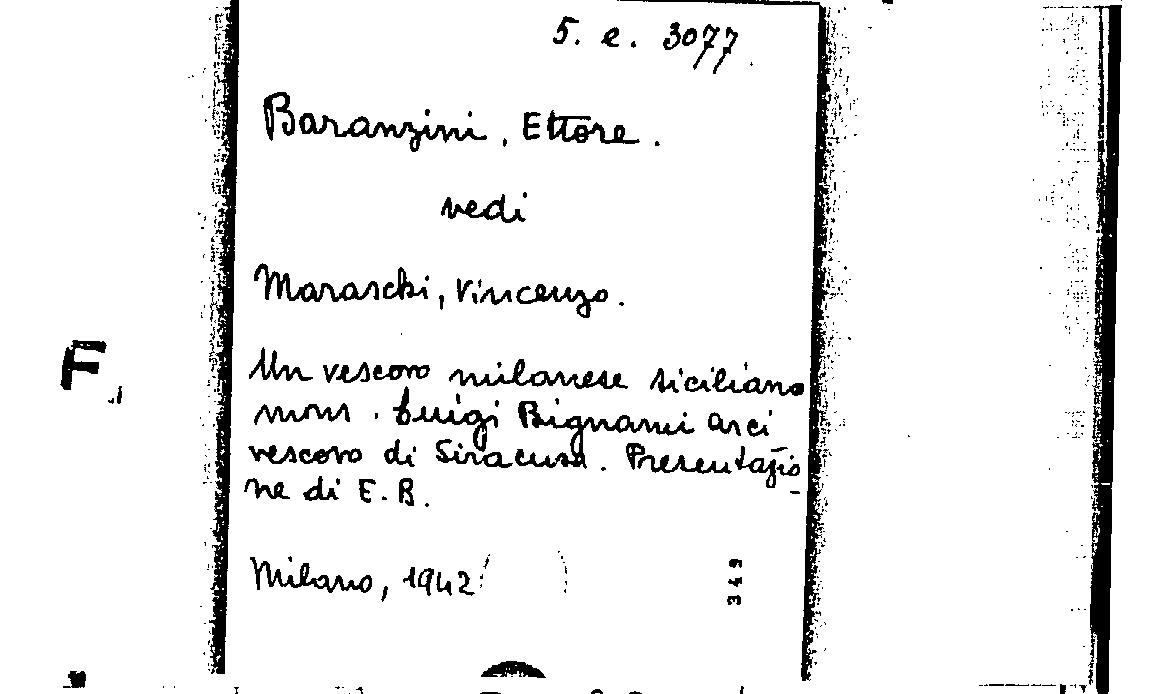 5. e. 3077
Baranzini, Ettore.
vedi
Maraschi, Vincenzo.
Un vescovo milanese siciliano
mons. Luigi Bignami arci
vescovo di Siracusa. Presentazio
ne di E. B.
Milano, 1942
349
F